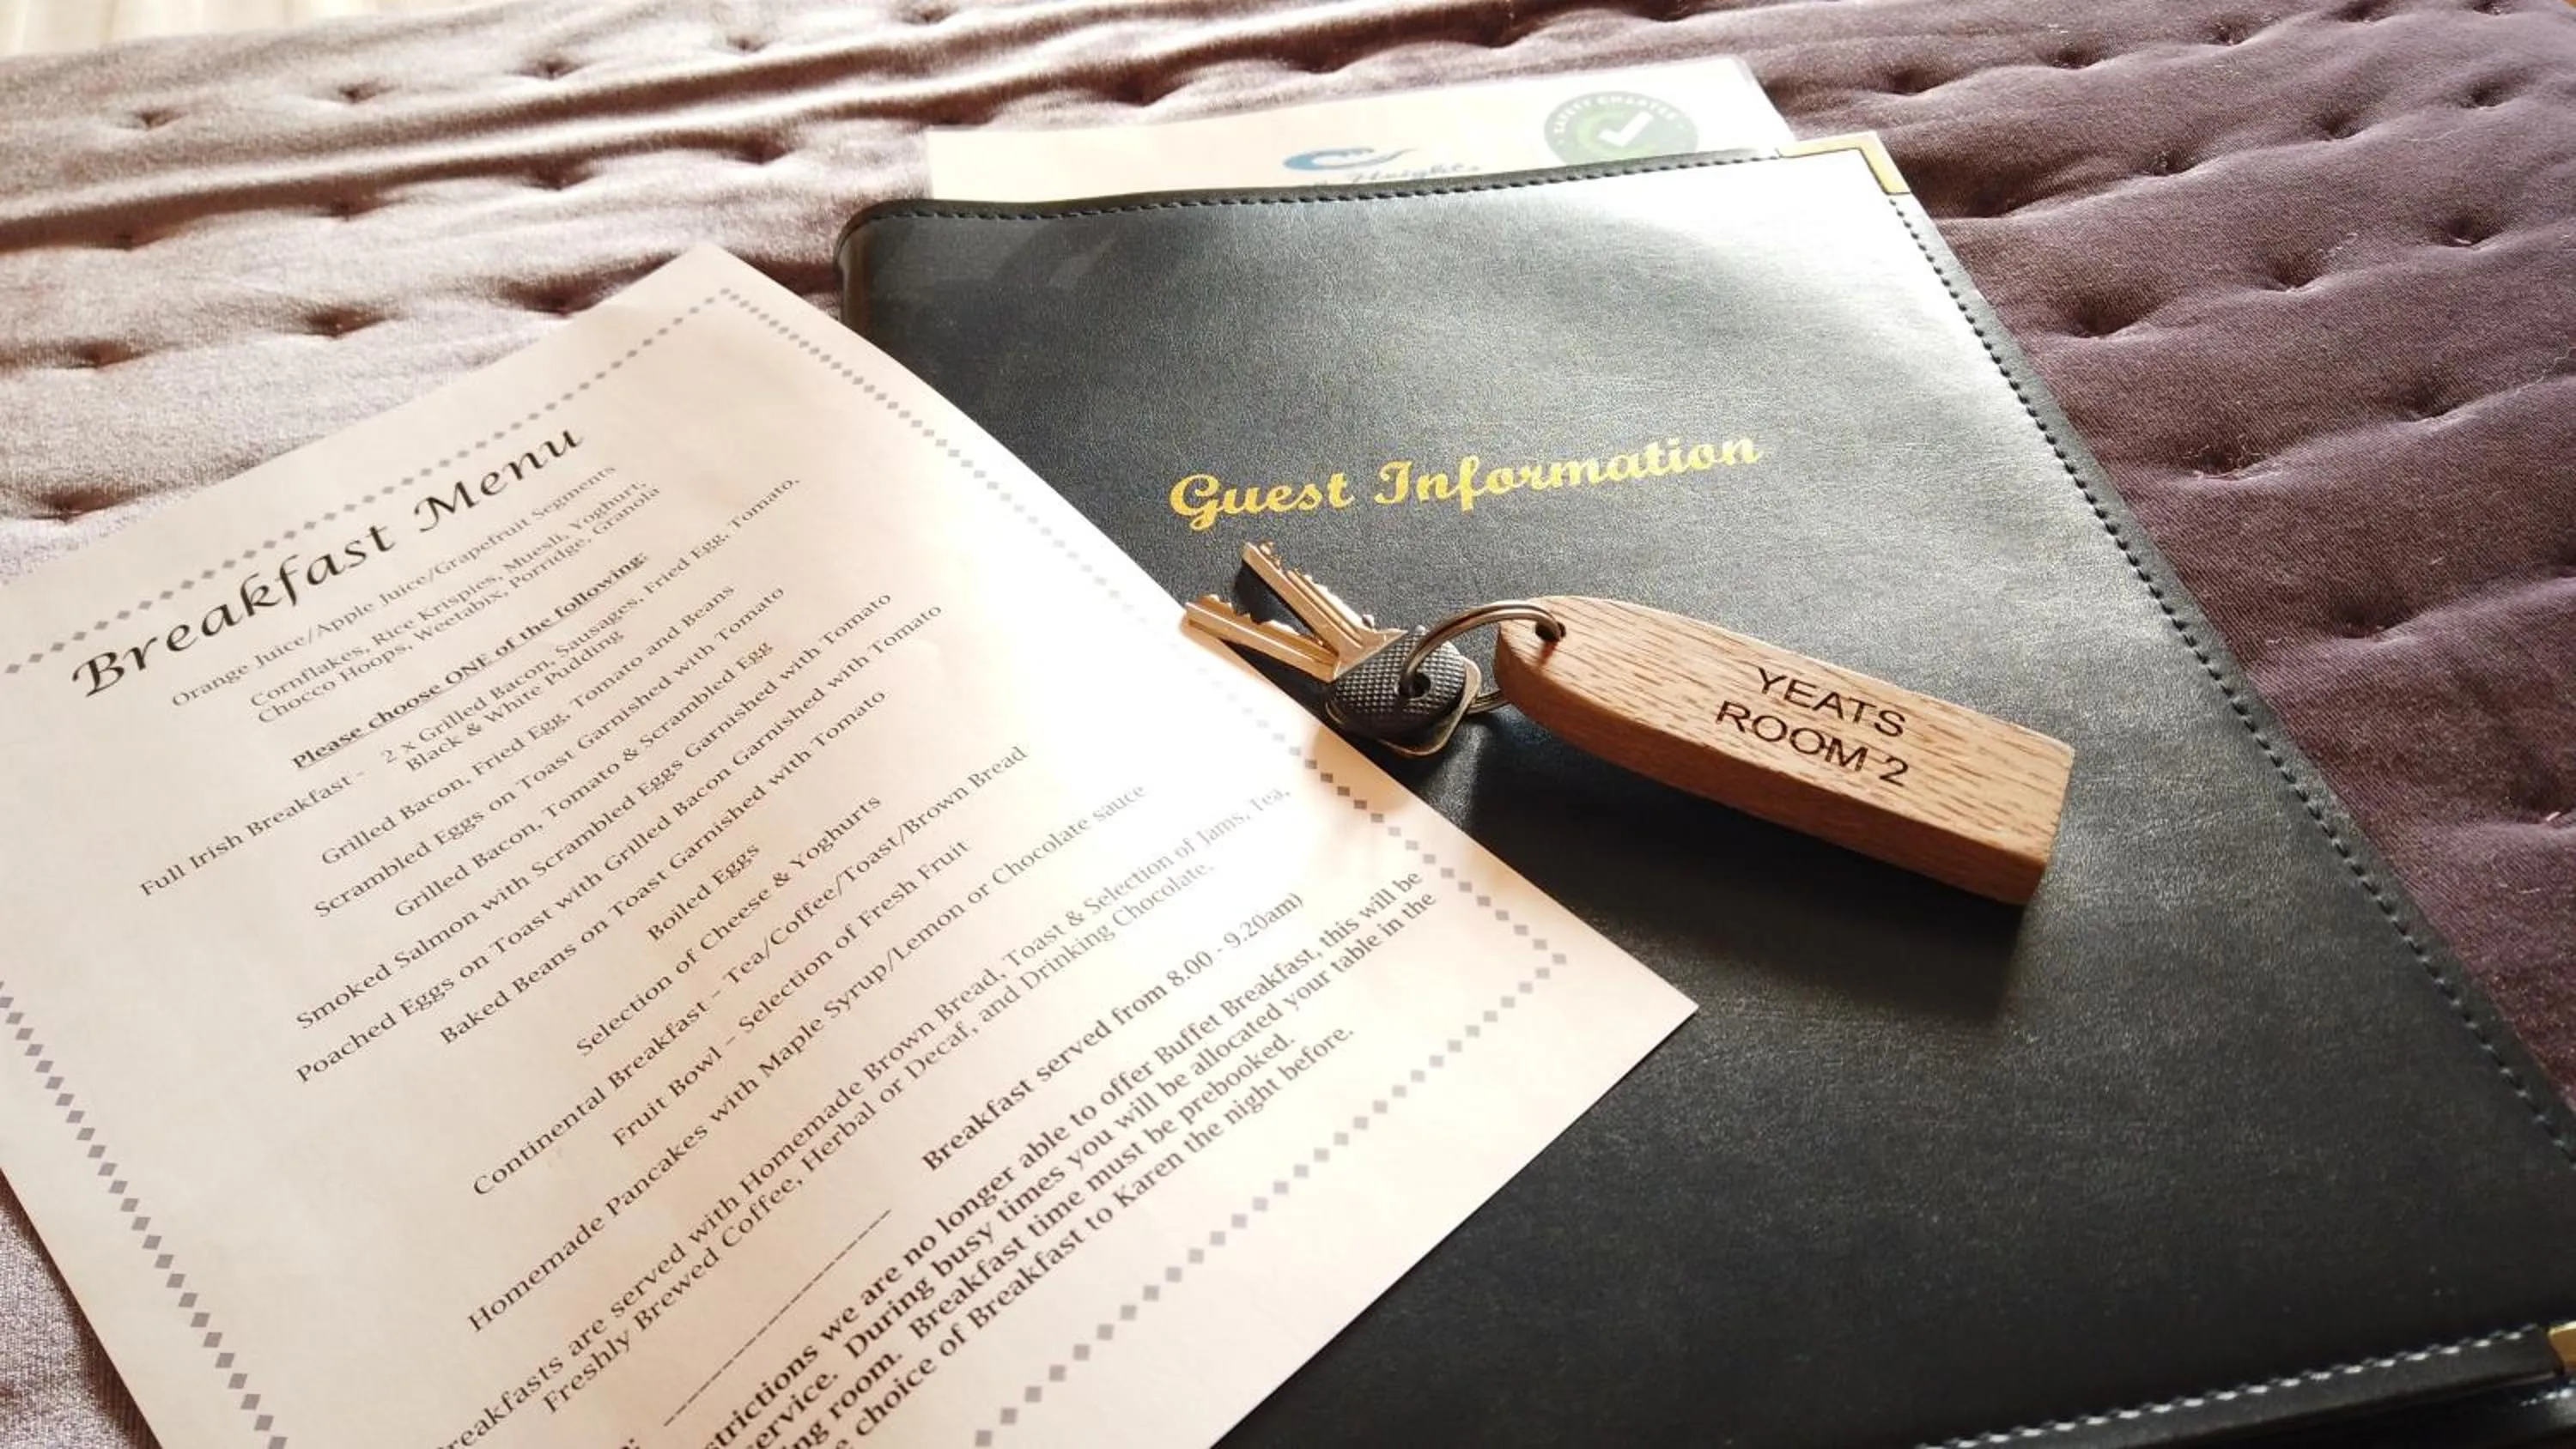 Breakfast Menu
Orange Juice/Apple Juice/Grapefruit Segments
Cornflakes, Rice Krispies, Muesli, Yoghurt,
Chocco Hoops, Weetabix, Porridge, Granola
Please choose ONE of the following:
Full Irish Breakfast - 2 x Grilled Bacon, Sausages, Fried Egg, Tomato,
Black & White Pudding
Grilled Bacon, Fried Egg, Tomato and Beans
Scrambled Eggs on Toast Garnished with Tomato
Grilled Bacon, Tomato & Scrambled Egg
Smoked Salmon with Scrambled Eggs Garnished with Tomato
Poached Eggs on Toast with Grilled Bacon Garnished with Tomato
Baked Beans on Toast Garnished with Tomato
Boiled Eggs
Selection of Cheese & Yoghurts
Continental Breakfast – Tea/Coffee/Toast/Brown Bread
Fruit Bowl – Selection of Fresh Fruit
Homemade Pancakes with Maple Syrup/Lemon or Chocolate sauce
reakfasts are served with Homemade Brown Bread, Toast & Selection of Jams, Tea,
Freshly Brewed Coffee, Herbal or Decaf, and Drinking Chocolate.
Breakfast served from 8.00 - 9.20am)
strictions we are no longer able to offer Buffet Breakfast, this will be
ervice. During busy times you will be allocated your table in the
ing room. Breakfast time must be prebooked.
e choice of Breakfast to Karen the night before.
SAFETY CHARTER
Heights
Guest Information
YEATS
ROOM 2